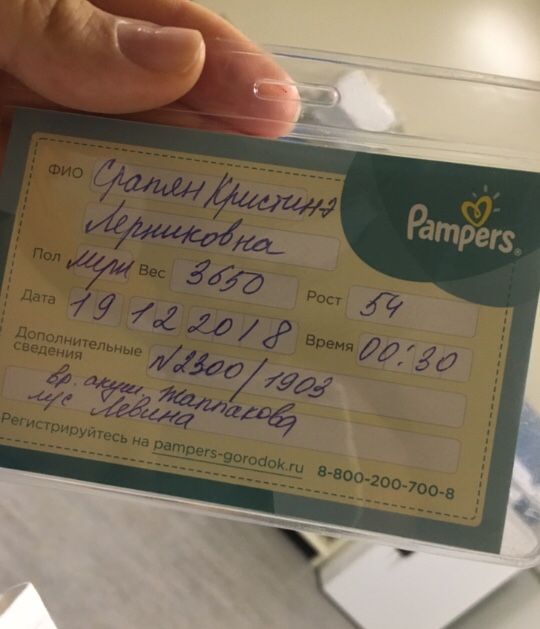 Pampers®
ФИО Срапян Кристина
Лерниковна
Пол муж Вес 3650 Рост 54
Дата 19 12 2018 Время 00:30
Дополнительные сведения N2300/1903
вр. акуш. Жаппакова
м/с Левина
Регистрируйтесь на pampers-gorodok.ru 8-800-200-700-8